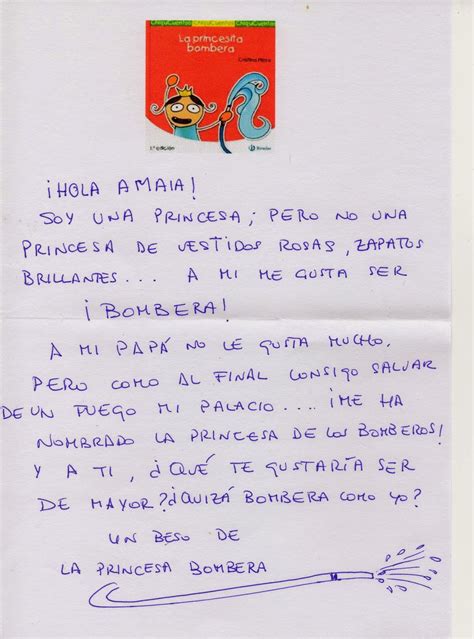 ChiquiCuentos ChiquiCuentos ChiquiCuentos
La princesita
bombera
1ª edición
Bruño
¡HOLA AMAIA!
SOY UNA PRINCESA; PERO NO UNA
PRINCESA DE VESTIDOS ROSAS, ZAPATOS
BRILLANTES... A MI ME GUSTA SER
¡BOMBERA!
A MI PAPÁ NO LE GUSTA MUCHO.
PERO COMO AL FINAL CONSIGO SALVAR
DE UN FUEGO MI PALACIO.... ¡ME HA
NOMBRADO LA PRINCESA DE LOS BOMBEROS!
Y A TI, ¿QUÉ TE GUSTARÍA SER
DE MAYOR? ¿QUIZÁ BOMBERA COMO YO?
UN BESO DE
LA PRINCESA BOMBERA